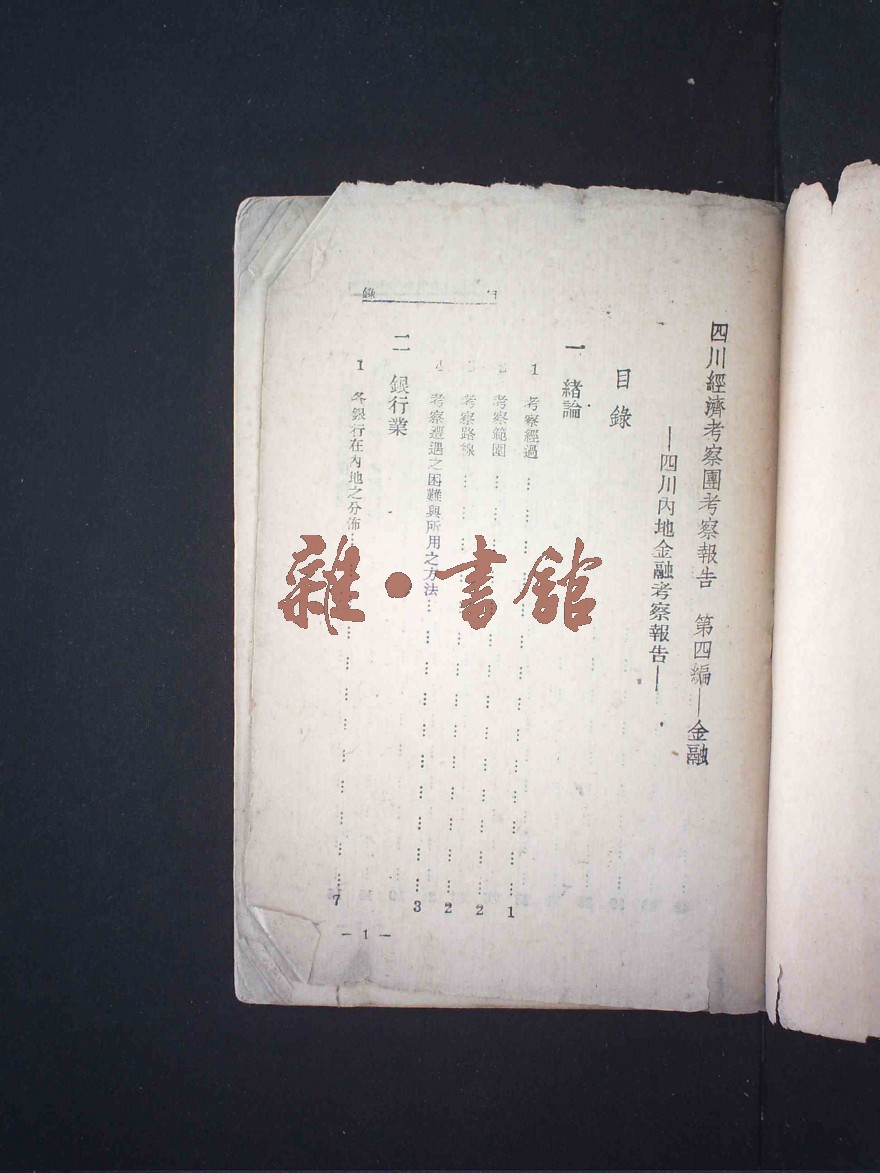 四川經濟考察團考察報告 第四編—金融
—四川內地金融考察報告—
目錄
一 緒論
1 考察經過 … … … … … … … … … … … 1
2 考察範圍 … … … … … … … … … … … 2
考察路線 … … … … … … … … … … … 2
4 考察遭遇之困難與所用之方法… … … … … … … 3
二 銀行業
1 各銀行在內地之分佈… … … … … … … … … 7
錄
— 1 —
雜·書館